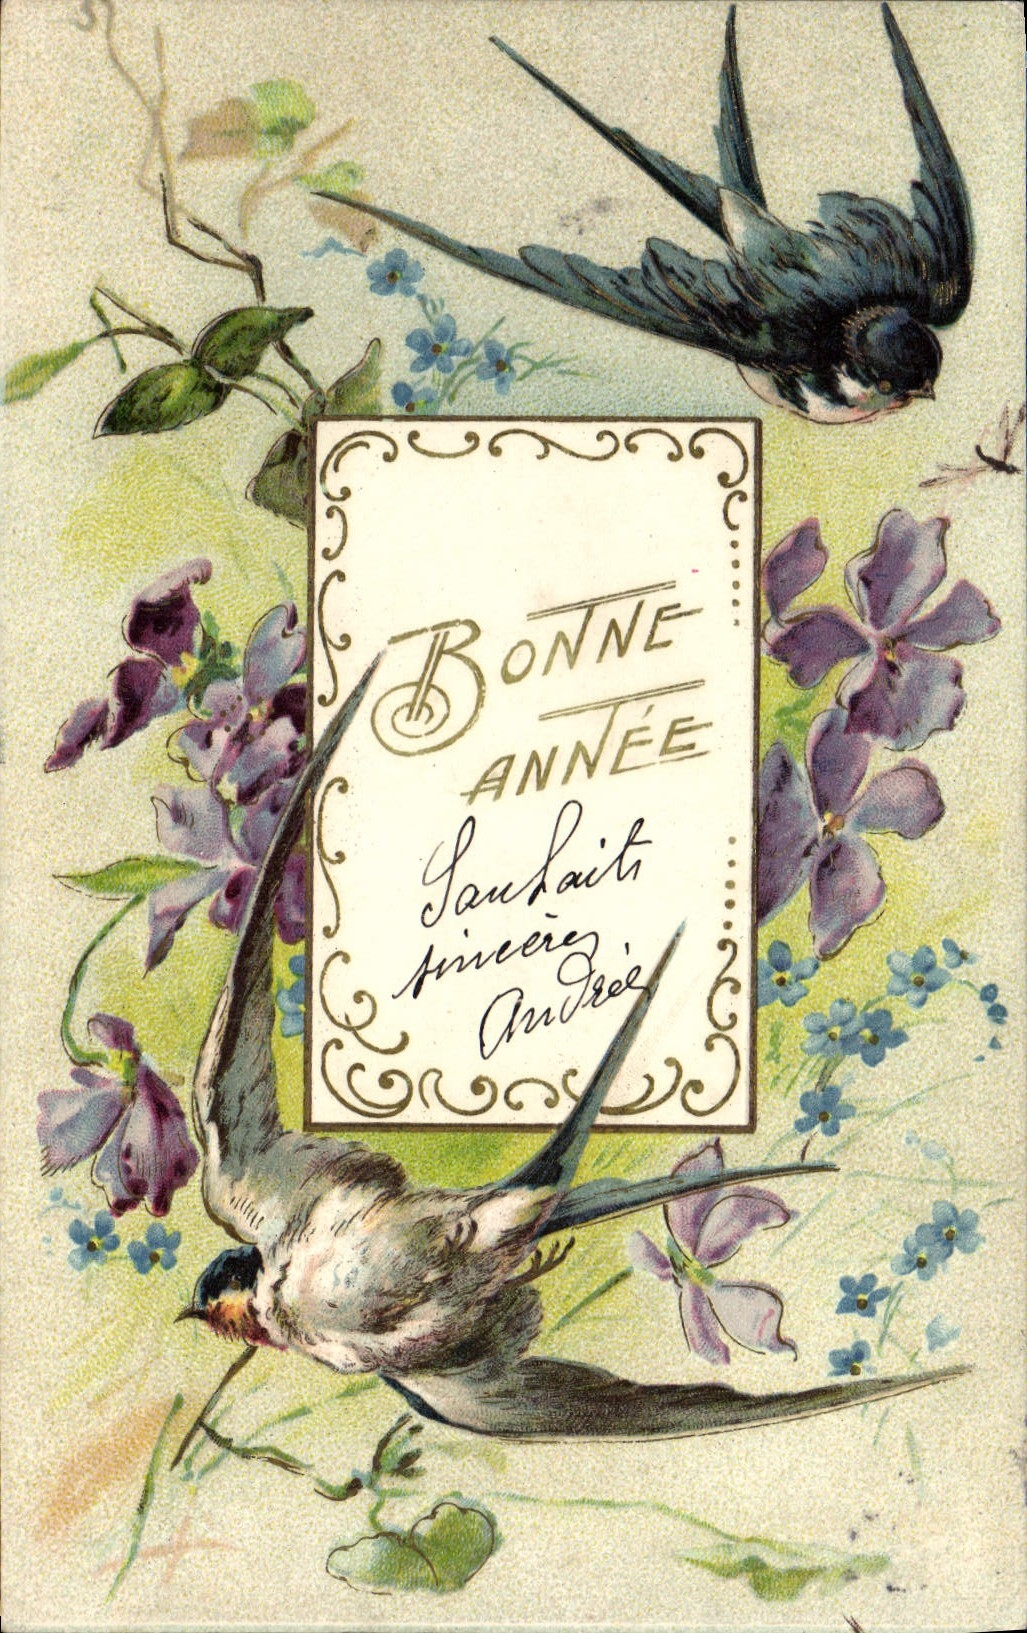 BONNE
ANNÉE
Souhaits
sincères
Andrée